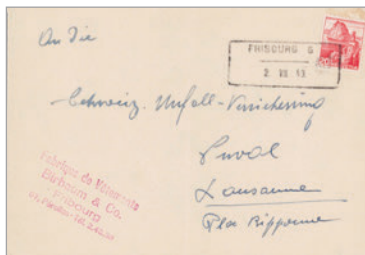 An die
FRIBOURG 6
2. VII. 43
Schweiz. Unfall-Versicherung
Lausanne
Place Riponne
Fabrique de Vêtements
Birbaum & Co.
Fribourg